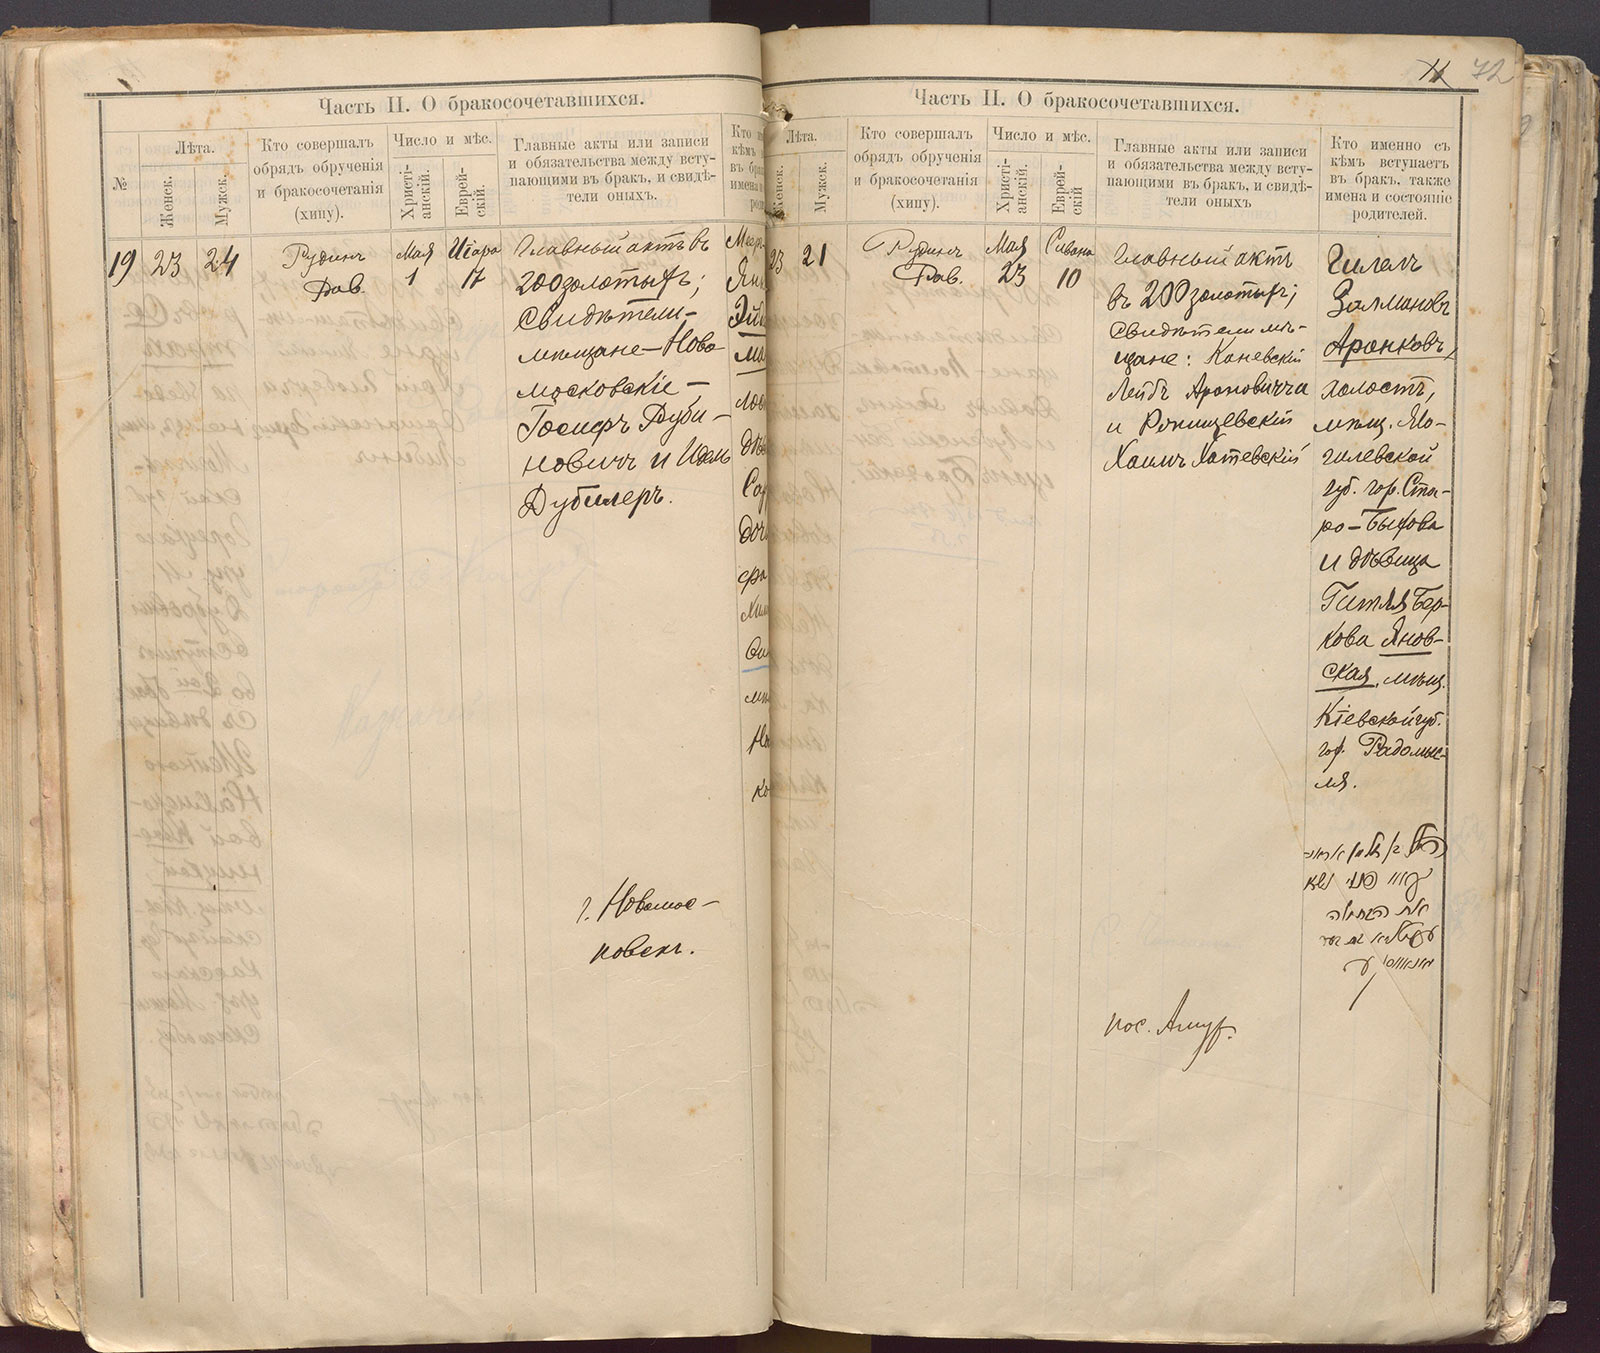 Часть II. О бракосочетавшихся.
№
Лѣта.
Женск.
Мужск.
Кто совершалъ
обрядъ обрученія
и бракосочетанія
(хупу).
Число и мѣс.
Христі-
анскій.
Еврей-
скій.
Главные акты или записи
и обязательства между всту-
пающими въ бракъ, и свидѣ-
тели оныхъ.
19
23
24
Рудинъ
Рав.
Мая
1
Иіара
17
Главный актъ въ
200 золотыхъ;
Свидѣтели-
мѣщане-Ново
московскіе-
Іосифъ Руби-
новичъ и Идель
Дубилеръ.
г. Новомос-
ковскъ.
72
Часть II. О бракосочетавшихся.
Лѣта.
Женск.
Мужск.
Кто совершалъ
обрядъ обрученія
и бракосочетанія
(хупу).
Число и мѣс.
Христі-
анскій.
Еврей-
скій
Главные акты или записи
и обязательства между всту-
пающими въ бракъ, и свидѣ-
тели оныхъ
Кто именно съ
кѣмъ вступаетъ
въ бракъ, также
имена и состояніе
родителей.
23
21
Рудинъ
Рав.
Мая
23
Сивана
10
Главный актъ
въ 200 золотыхъ;
свидѣтели мѣ-
щане: Каневскій
Лейбъ Ароновичъ
и
Хаимъ
Гилель
Залмановъ
Аронковъ,
холостъ,
мѣщ. Мо-
гилевской
губ. гор. Ста-
ро-Быхова
и дѣвица
Гитля Бер-
кова Янов-
ская, мѣщ.
Кіевской губ.
гор. Радомыс-
ля.
пос. Амур.